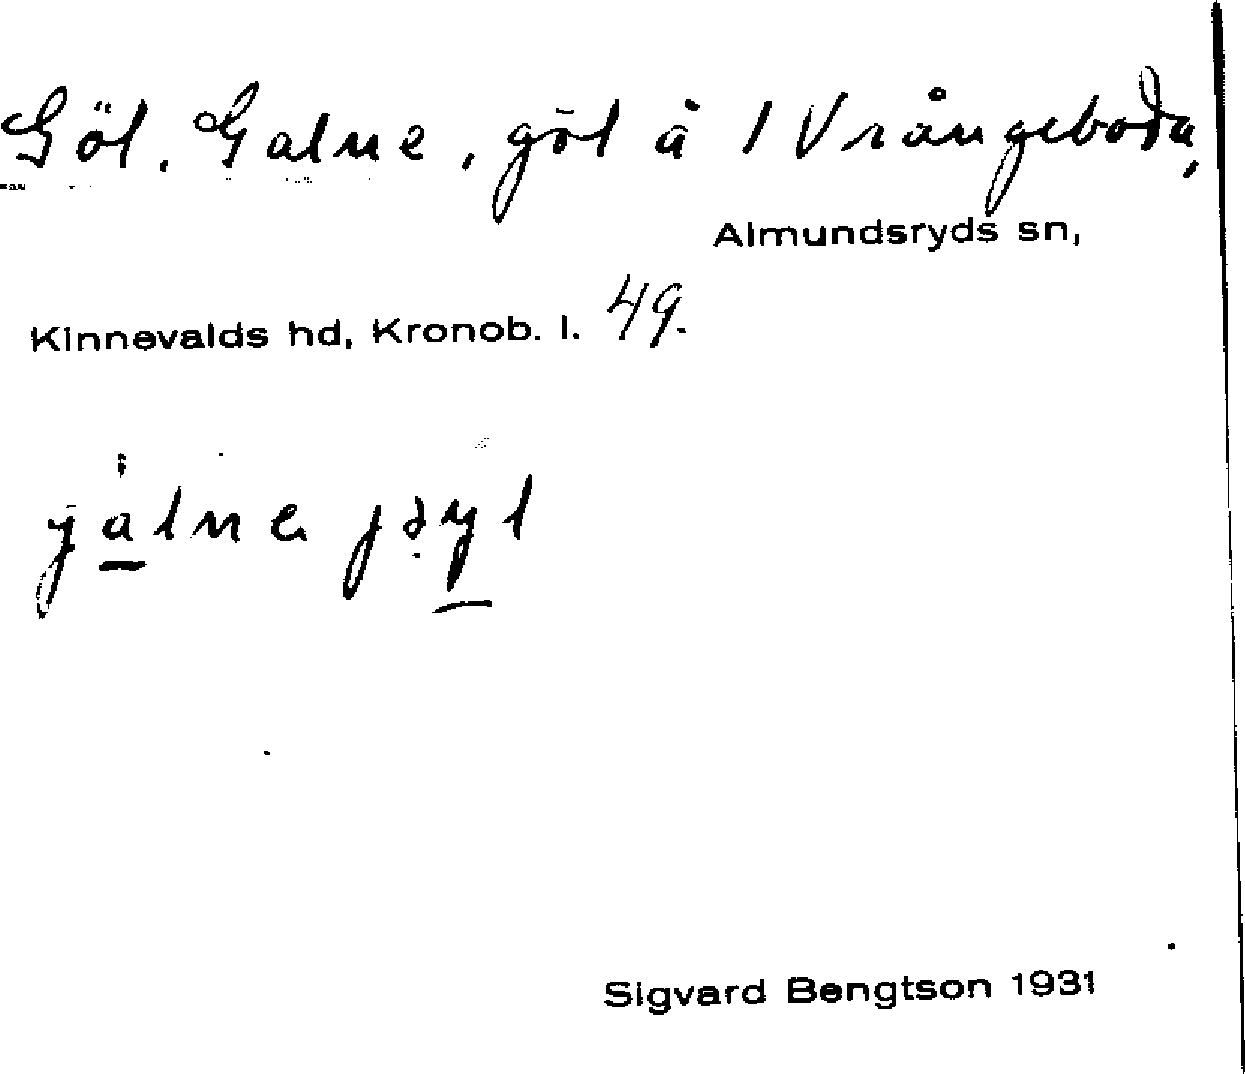 Göl, Galne, göl å 1 Vrångeboda,
Almundsryds sn,
Kinnevalds hd, Kronob. l. 49.
Sigvard Bengtson 1931